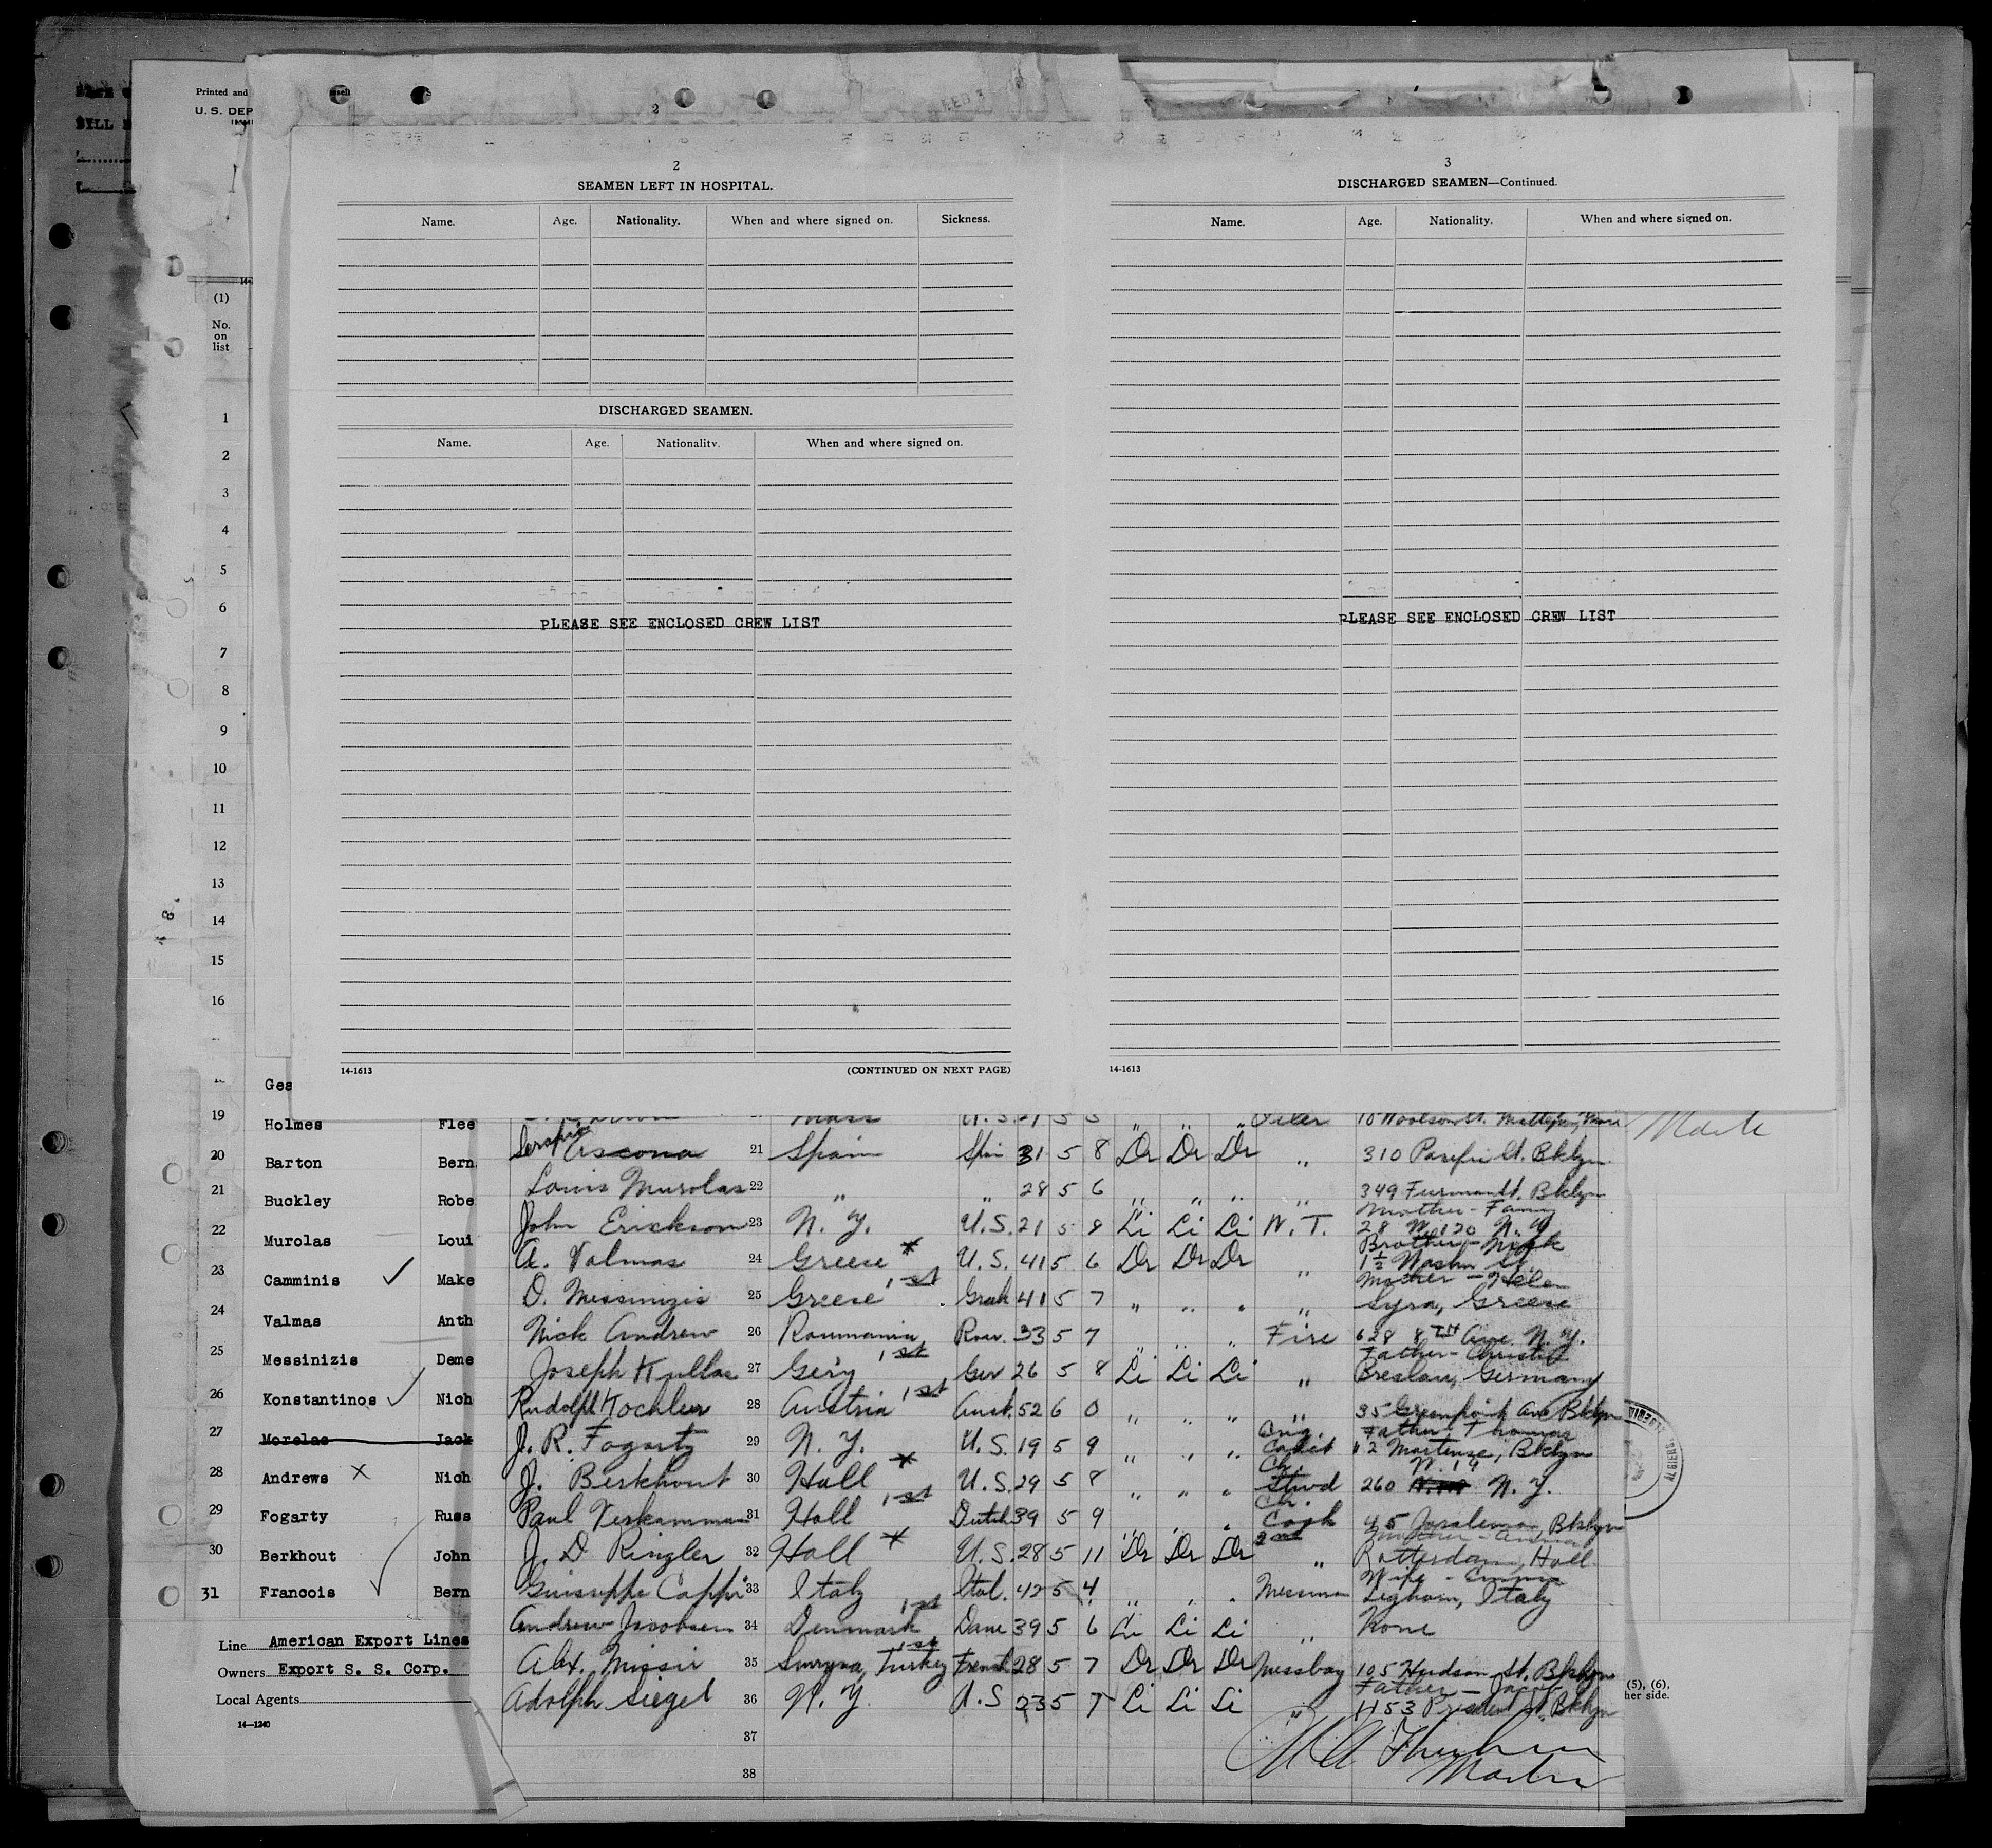 Printed and
U. S. DEP
(1)
No.
on
list
1
2
3
4
5
6
7
8
9
10
11
12
13
14
15
16
2
2
SEAMEN LEFT IN HOSPITAL.
Name. Age. Nationality. When and where signed on. Sickness.
DISCHARGED SEAMEN.
Name. Age. Nationality. When and where signed on.
PLEASE SEE ENCLOSED CREW LIST
14-1613 (CONTINUED ON NEXT PAGE)
3
DISCHARGED SEAMEN—Continued.
Name. Age. Nationality. When and where signed on.
PLEASE SEE ENCLOSED CREW LIST
14-1613
Gea
19 Holmes Flee
20 Barton Bern
21 Buckley Robe
22 Murolas Loui
23 Camminis Make
24 Valmas Anth
25 Messinizis Deme
26 Konstantinos Nich
27 Morelas Jack
28 Andrews X Nich
29 Fogarty Russ
30 Berkhout John
31 Francois Bern
Line American Export Lines
Owners Export S. S. Corp.
Local Agents
14—1240
Mass U.S. 21 5 Oiler
Ascona 21 Spain Span 31 5 8 Dr Dr Dr " 310 Pacific St. Bklyn
Louis Murolas 22 " " 28 5 6 " " " " 349 Furman St. Bklyn
Mother - Fanny
John Erickson 23 N. Y. U.S. 21 5 8 Li Li Li W. T. 28 W. 120 N. Y
Brother - Nick
A. Valmas 24 Greese * U. S. 41 5 6 Dr Dr Dr " 1½ Washn St.
Mother - Helen
D. Messinizis 25 Greese 1st Greek 41 5 7 " " " " Syra, Greese
Nick Andrew 26 Roumania Rou. 33 5 7 " " " Fire 628 8TH Ave N. Y.
Father - Christof
Joseph Kullas 27 Gery 1st Ger 26 5 8 Li Li Li " Breslau, Germany
Rudolph Kochler 28 Austria 1st Aust. 52 6 0 " " " " 35 Greenpoint Ave Bklyn
Father Thomas
J. R. Fogarty 29 N. Y. U.S. 19 5 9 " " " Eng. Cadet 12 Martense, Bklyn
W. 14
J. Berkhout 30 Holl * U.S. 29 5 8 " " " Ch. Stwd 260 N. Y.
Paul Verkamman 31 Holl 1st Dutch 39 5 9 " " " Ch. Cook 45 Joralemon, Bklyn
Mother - Anna
J. D Ringler 32 Holl * U.S. 28 5 11 Dr Dr Dr 2nd " Rotterdam, Holl
Wife - Emma
Guiseppe Cappi 33 Italy Ital. 42 5 4 " " " Messman Leghorn, Italy
Andrew Jacobsen 34 Denmark 1st Dane 39 5 6 Li Li Li " None
Alex. Missir 35 Smryna, Turkey 1st French 28 5 7 Dr Dr Dr Messboy 105 Hudson St. Bklyn
Father - Jacob
Adolph Siegel 36 N. Y. U.S 23 5 7 Li Li Li " 1153 President St. Bklyn
37
38
Master
(5), (6),
her side.